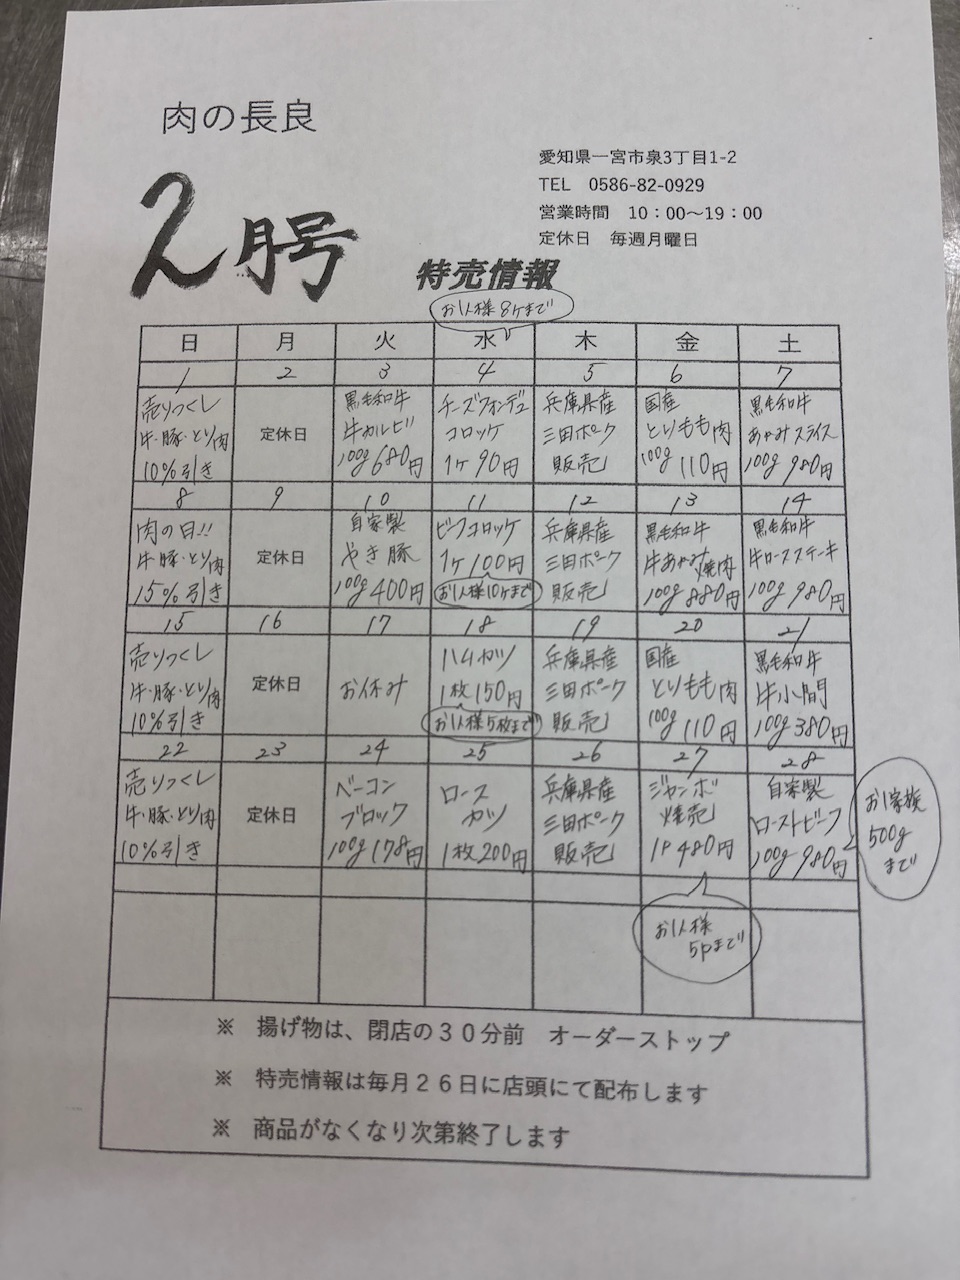 肉の長良
愛知県一宮市泉3丁目1-2
TEL 0586-82-0929
営業時間 10：00～19：00
定休日 毎週月曜日
2月号
特売情報
お1人様8ケまで
日 月 火 水 木 金 土
1 2 3 4 5 6 7
売りつくし
牛・豚・とり肉
10%引き
定休日
黒毛和牛
牛カルビ
100g 680円
チーズフォンデュ
コロッケ
1ケ 90円
兵庫県産
三田ポーク
販売
国産
とりもも肉
100g 110円
黒毛和牛
あかみスライス
100g 980円
8 9 10 11 12 13 14
肉の日!!
牛・豚・とり肉
15%引き
定休日
自家製
やき豚
100g 400円
ビーフコロッケ
1ケ100円
お1人様10ケまで
兵庫県産
三田ポーク
販売
黒毛和牛
牛あかみ焼肉
100g 880円
黒毛和牛
牛ロースステーキ
100g 980円
15 16 17 18 19 20 21
売りつくし
牛・豚・とり肉
10%引き
定休日
お休み
ハムカツ
1枚150円
お1人様5枚まで
兵庫県産
三田ポーク
販売
国産
とりもも肉
100g 110円
黒毛和牛
牛小間
100g 380円
22 23 24 25 26 27 28
売りつくし
牛・豚・とり肉
10%引き
定休日
ベーコン
ブロック
100g 178円
ロース
カツ
1枚200円
兵庫県産
三田ポーク
販売
ジャンボ
焼売
1P 480円
お1人様
5pまで
自家製
ローストビーフ
100g 980円
お1家族
500g
まで
※ 揚げ物は、閉店の３０分前 オーダーストップ
※ 特売情報は毎月２６日に店頭にて配布します
※ 商品がなくなり次第終了します